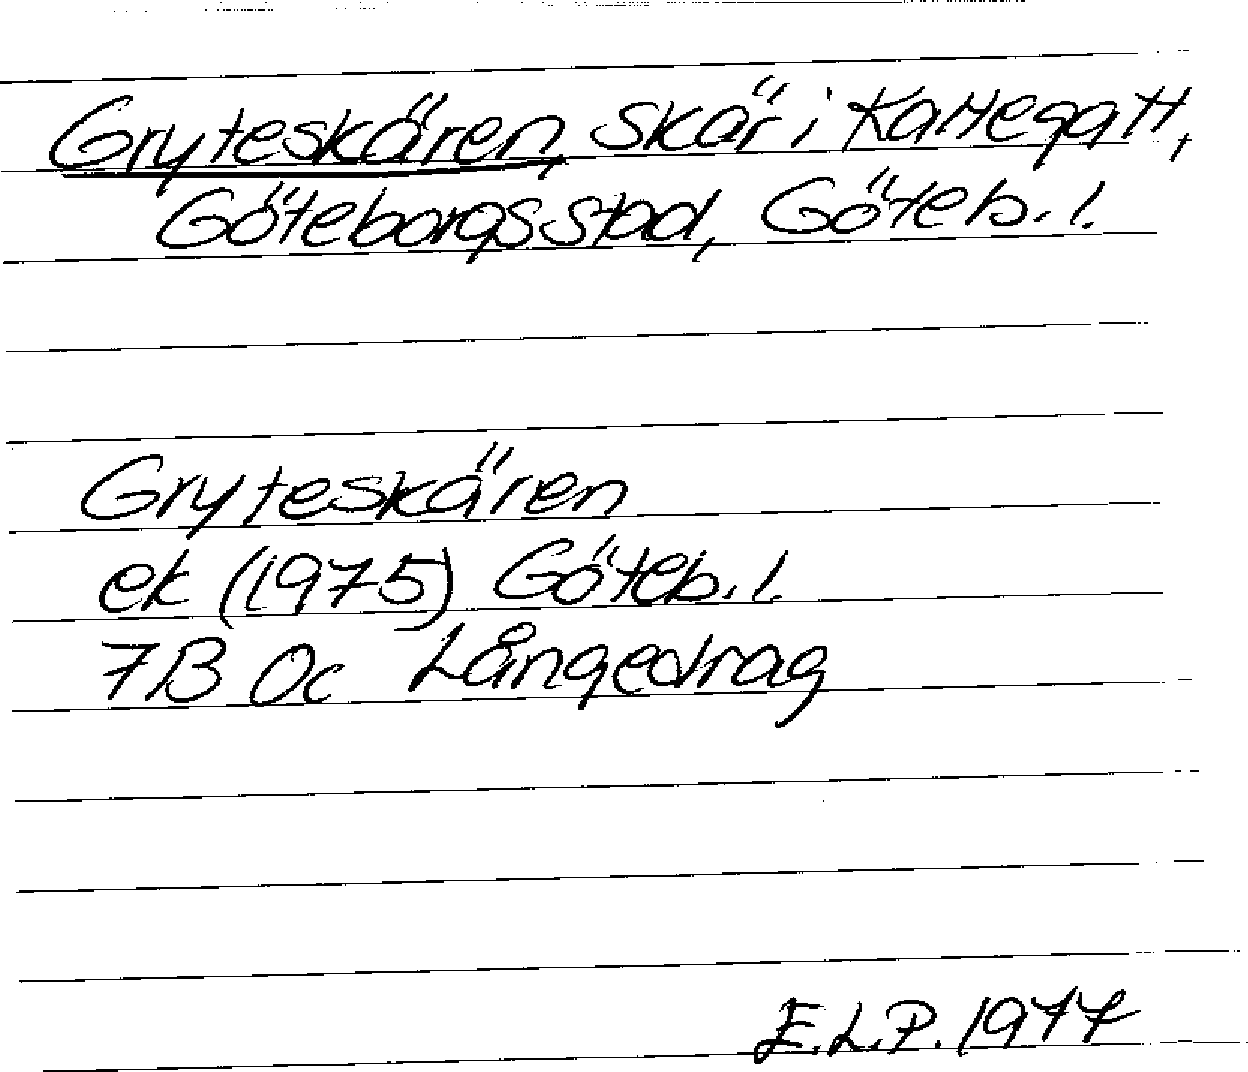 Gryteskären, skär i Kattegatt,
Göteborgs stad, Göteb. l.
Gryteskären
ek (1975) Göteb. l.
7B 0c Långedrag
E.L.P. 1977